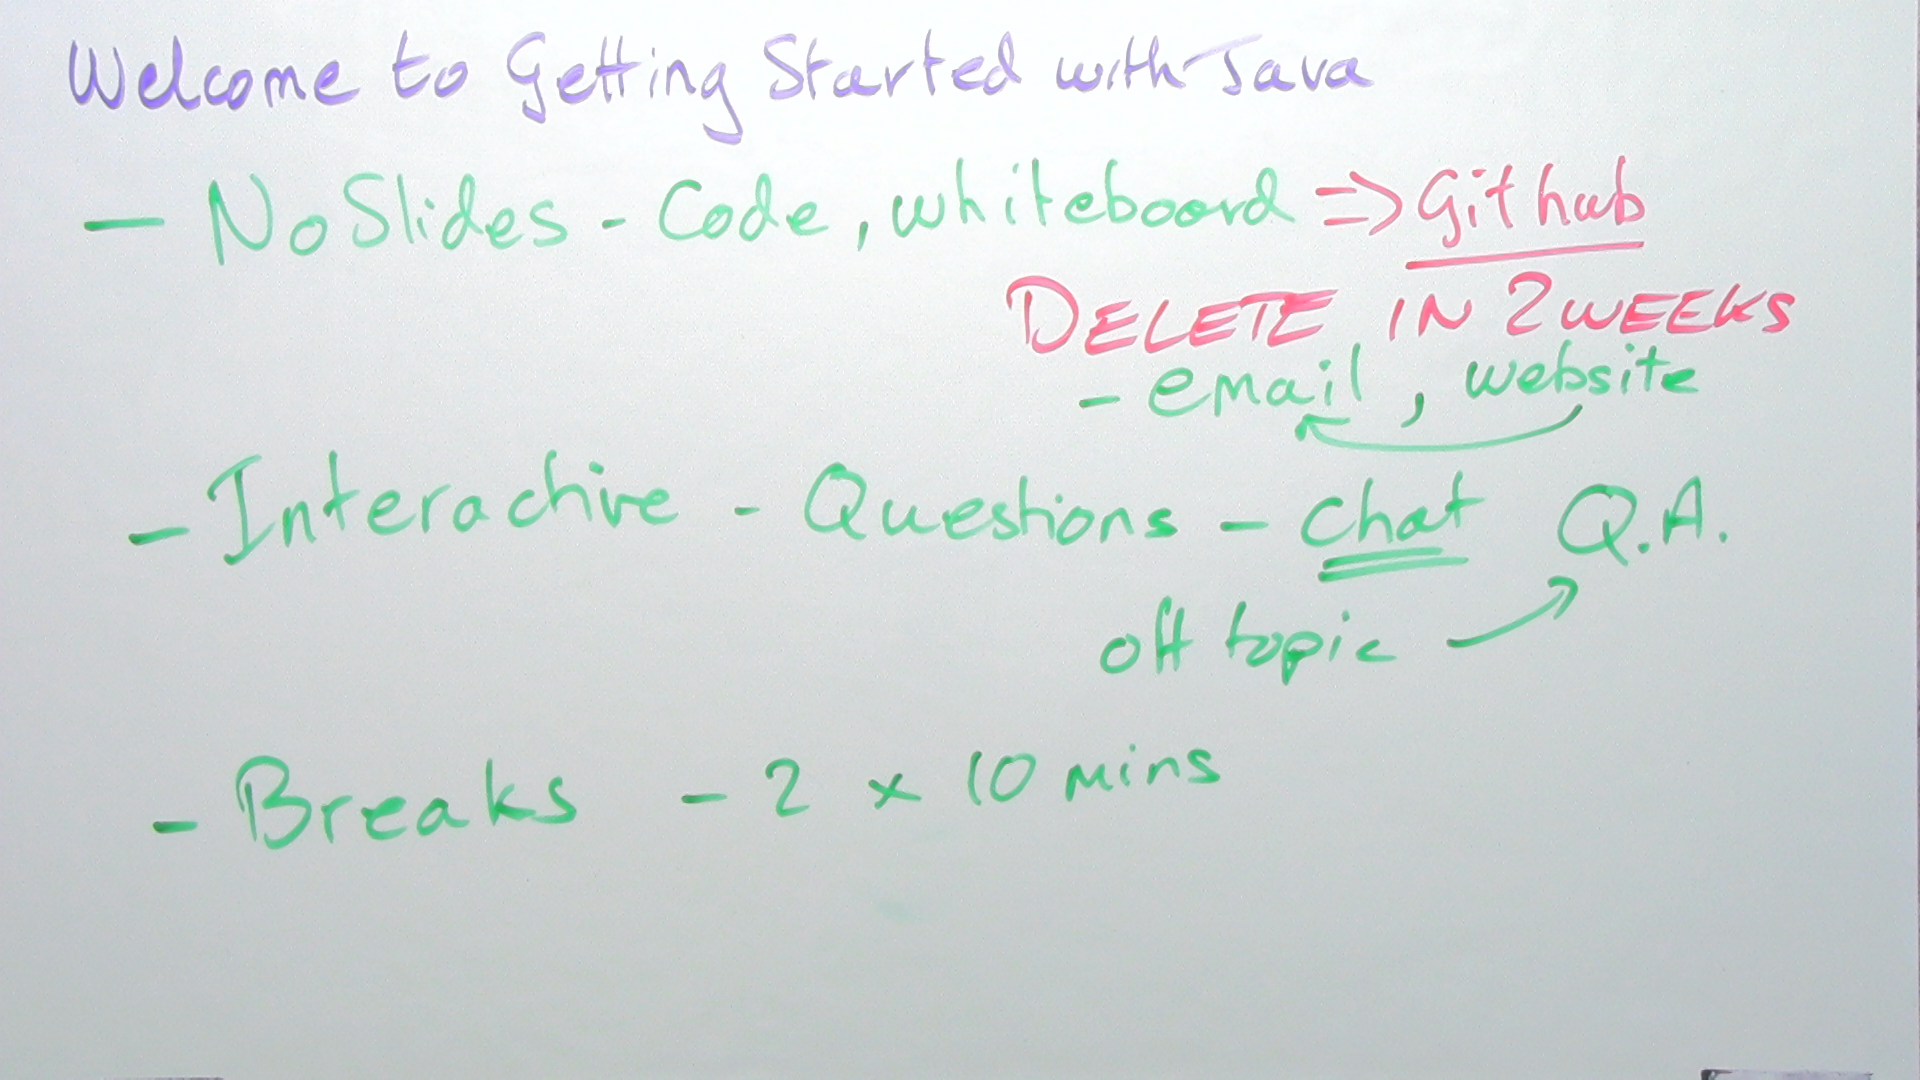 Welcome to Getting Started with Java
— No Slides - Code, whiteboard => Github
DELETE IN 2 WEEKS
- email, website
- Interactive - Questions - chat Q.A.
off topic
- Breaks - 2 x 10 mins